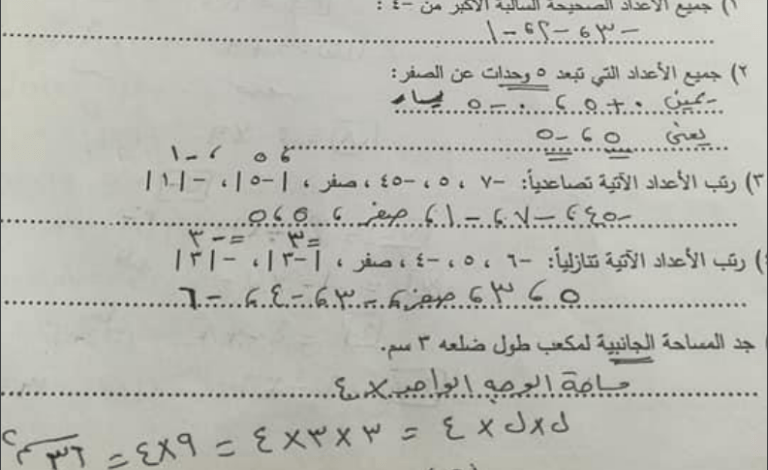 ١) جميع الأعداد الصحيحة السالبة الأكبر من -٤ :
-٣ ، -٢ ، -١
٢) جميع الأعداد التي تبعد ٥ وحدات عن الصفر:
يمين ٠+٥ ، ٠-٥ يسار
يعني ٥ ، -٥
٥ ، -١
٣) رتب الأعداد الآتية تصاعدياً: -٧ ، ٥، -٤٥ ، صفر ، |-٥| ، -|١|
-٤٥ ، -٧ ، -١ ، صفر ، ٥ ، ٥
=٣ = -٣
) رتب الأعداد الآتية تنازلياً: -٦ ، ٥، -٤ ، صفر ، |-٣| ، -|٣|
٥ ، ٣ ، صفر ، -٣ ، -٤ ، -٦
) جد المساحة الجانبية لمكعب طول ضلعه ٣ سم.
مساحة الوجه الواحد × ٤
ل × ل × ٤ = ٣ × ٣ × ٤ = ٩ × ٤ = ٣٦ سم٢